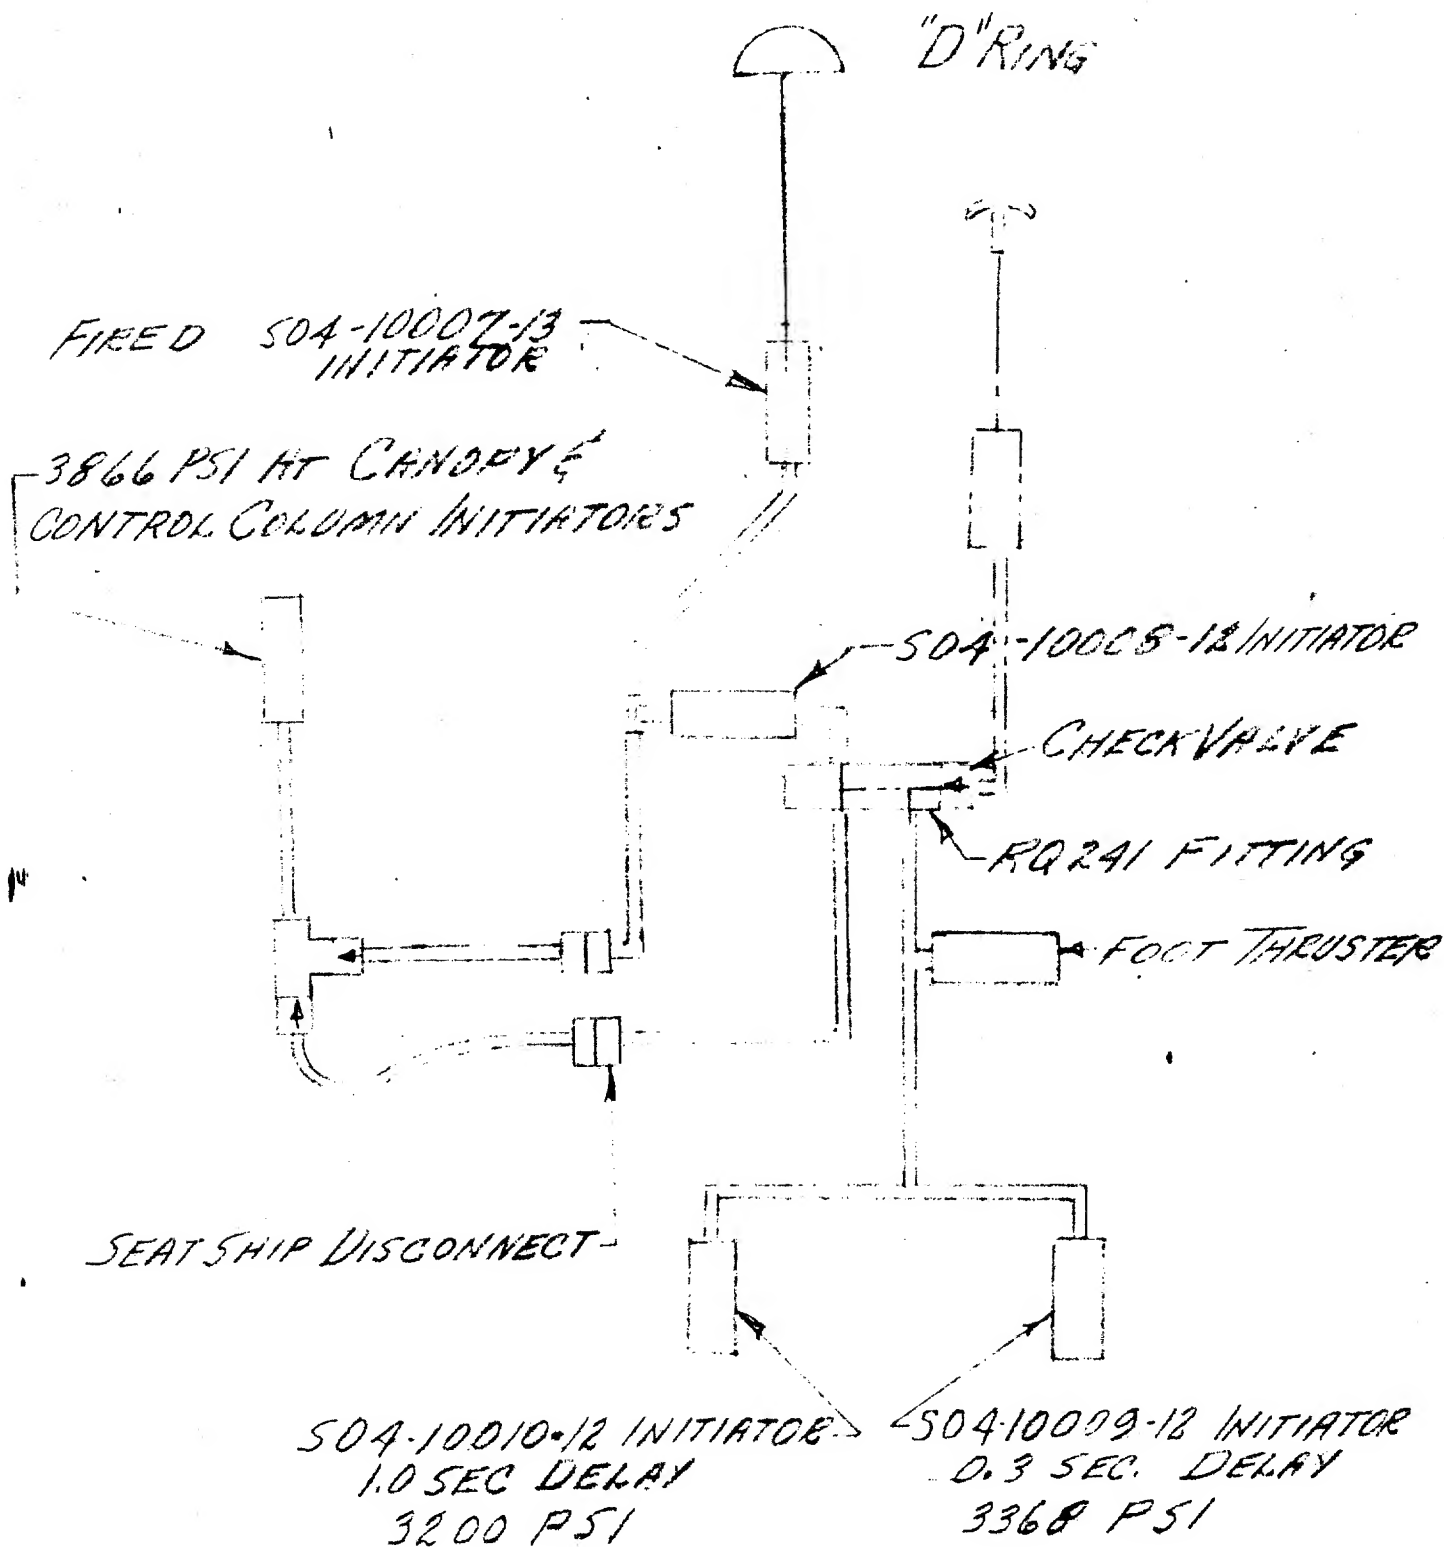 "D" RING
FIRED SO4-10007-13
INITIATOR
3866 PSI AT CANOPY &
CONTROL COLUMN INITIATORS
SO4-10008-12 INITIATOR
CHECK VALVE
RQ241 FITTING
FOOT THRUSTER
SEAT SHIP DISCONNECT
SO4-10010-12 INITIATOR
1.0 SEC DELAY
3200 PSI
SO4-10009-12 INITIATOR
0.3 SEC. DELAY
3368 PSI